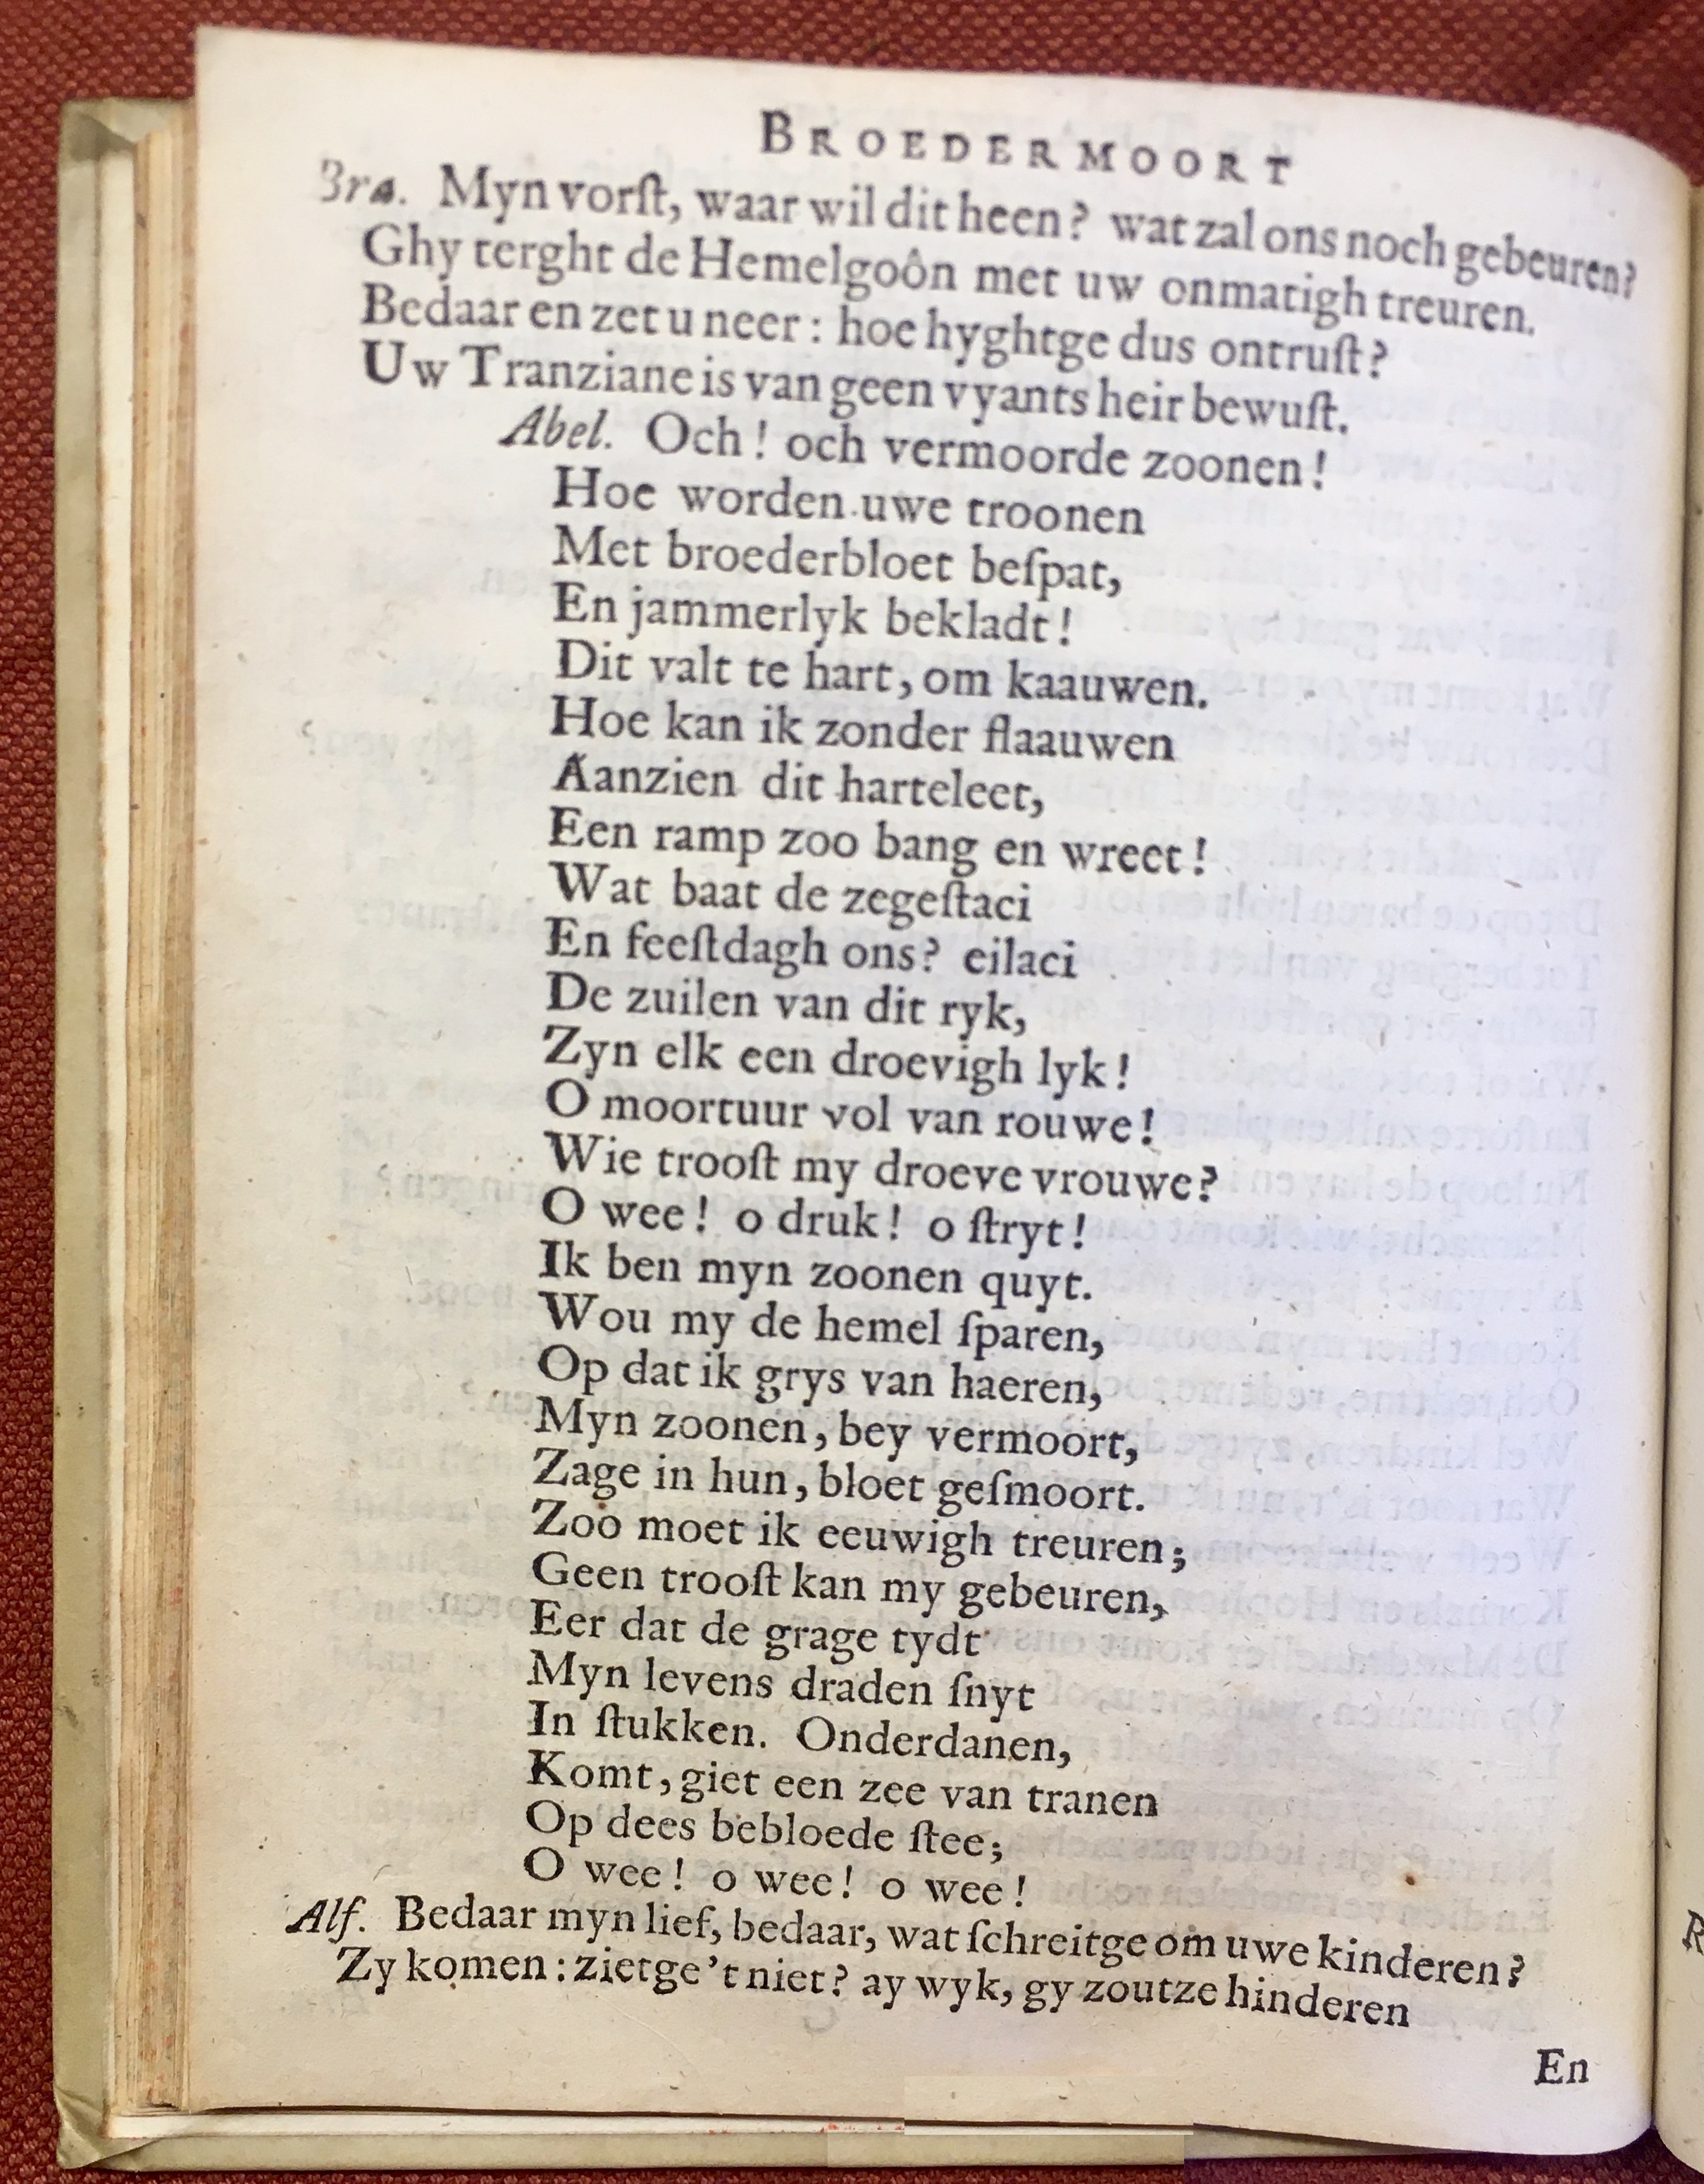 BROEDERMOORT
Bra. Myn vorſt, waar wil dit heen? wat zal ons noch gebeuren?
Ghy terght de Hemelgoôn met uw onmatigh treuren.
Bedaar en zet u neer: hoe hyghtge dus ontruſt?
Uw Tranziane is van geen vyants heir bewuſt.
Abel. Och! och vermoorde zoonen!
Hoe worden uwe troonen
Met broederbloet beſpat,
En jammerlyk bekladt!
Dit valt te hart, om kaauwen.
Hoe kan ik zonder flaauwen
Aanzien dit harteleet,
Een ramp zoo bang en wreet!
Wat baat de zegeſtaci
En feeſtdagh ons? eilaci
De zuilen van dit ryk,
Zyn elk een droevigh lyk!
O moortuur vol van rouwe!
Wie trooſt my droeve vrouwe?
O wee! o druk! o ſtryt!
Ik ben myn zoonen quyt.
Wou my de hemel ſparen,
Op dat ik grys van haeren,
Myn zoonen, bey vermoort,
Zage in hun, bloet geſmoort.
Zoo moet ik eeuwigh treuren;
Geen trooſt kan my gebeuren,
Eer dat de grage tydt
Myn levens draden ſnyt
In ſtukken. Onderdanen,
Komt, giet een zee van tranen
Op dees bebloede ſtee;
O wee! o wee! o wee!
Alf. Bedaar myn lief, bedaar, wat ſchreitge om uwe kinderen?
Zy komen: zietge 't niet? ay wyk, gy zoutze hinderen
En